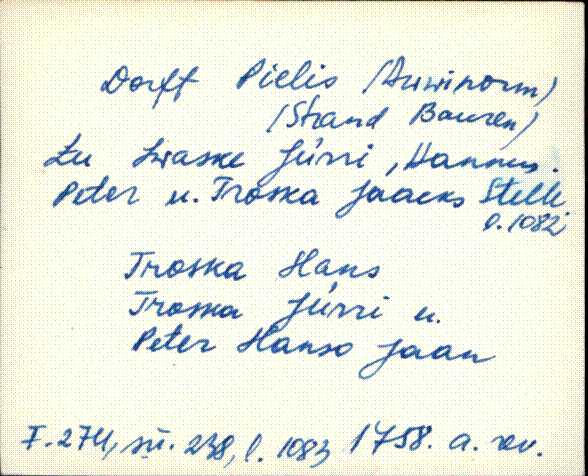 Dorff Pielis (Auwinorm)
(Strand Bauren)
Zu Iwaske Jürri, Hannus.
Peter u. Troska Jaacks Stelle
l. 1082
Troska Hans
Troska Jürri u.
Peter Hanso Jaan
F. 274, sü. 238, l. 1083 1758. a. rev.